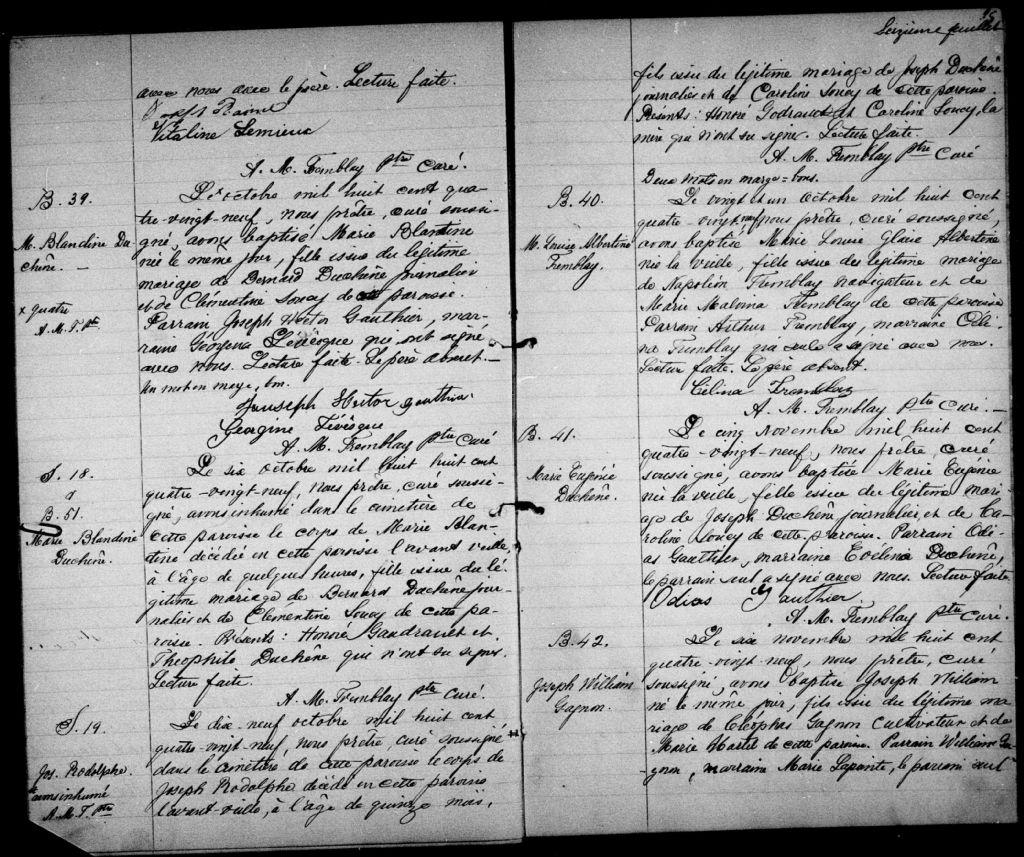 avec nous avec le père. Lecture faite.
Vitaline Lemieux
A. M. Tremblay Ptre Curé.
B. 39.
M. Blandine Du
chêne. —
x quatre
A. M. T. Ptre
Le x octobre mil huit cent qua-
tre-vingt-neuf, nous prêtre, curé soussi-
gné, avons baptisé Marie Blandine
née le même jour, fille issue du légitime
mariage de Bernard Duchêne journalier
et de Clémentine Soucy de paroisse.
Parrain Joseph Hector Gauthier, mar-
raine Lévèsque qui ont signé
avec nous. Lecture faite. Le père absent. —
Un mot en marge, bon.
Jouseph Hector gauthier
Georgine Lévèsque
A. M. Tremblay Ptre Curé
S. 18.
B. 51.
Marie Blandine
Duchêne.
Le six octobre mil huit huit cent
quatre-vingt-neuf, nous prêtre, curé soussi-
gné, avons inhumé dans le cimetière de
cette paroisse le corps de Marie Blan-
dine décédée en cette paroisse l'avant veille,
à l'âge de quelques heures, fille issue du lé-
gitime mariage de Bernard Duchêne jour-
nalier et de Clémentine Soucy de cette pa-
roisse. Présents: Honoré Gaudrault et
Théophile Duchêne qui n'ont su signer.
Lecture faite.
A. M. Tremblay Ptre Curé.
S. 19.
Jos. Rodolphe.
x avons inhumé
A. M. T. Ptre
Le dix-neuf octobre mil huit cent
quatre-vingt-neuf, nous prêtre, curé soussigné
dans le cimetière de cette paroisse le corps de
Joseph Rodolphe décédé en cette paroisse
l'avant-veille, à l'âge de quinze mois,
15
Seizième feuillet
fils issu du légitime mariage de Joseph Duchêne
journalier et de Caroline Soucy de cette paroisse.
Présents: Honoré Godrault et Caroline Soucy, la
mère qui n'ont su signer. Lecture faite.
A. M. Tremblay Ptre Curé
Deux mots en marge = bons.
B. 40.
M. Louise Albertine
Tremblay.
Le vingt et un Octobre mil huit cent
quatre-vingt neuf nous prêtre, curé soussigné,
avons baptisé Marie Louise Albertine
née la veille, fille issue du légitime mariage
de Napoléon Tremblay navigateur et de
Marie Malvina Tremblay de cette paroisse
Parrain Arthur Tremblay, marraine Céli-
na Tremblay qui seule a signé avec nous.
Lecture faite. Le père absent.
Célina Tremblay
A. M. Tremblay Ptre Curé. —
B. 41.
Marie Eugénie
Duchêne.
Le cinq Novembre mil huit cent
quatre-vingt-neuf, nous prêtre, curé
soussigné, avons baptisé Marie Eugénie
née la veille, fille issue du légitime mari-
age de Joseph Duchêne journalier et de Ca-
roline Soucy de cette paroisse. Parrain Odi-
as Gauthier, marraine Evelina Duchêne,
le parrain seul a signé avec nous. Lecture faite
Odias Gauthier.
A. M. Tremblay Ptre Curé.
B. 42.
Joseph William
Gagnon.
Le six novembre mil huit cent
quatre-vingt-neuf, nous prêtre, curé
soussigné, avons baptisé Joseph William
né le même jour, fils issu du légitime ma-
riage de Cléophas Gagnon cultivateur et de
Marie Martel de cette paroisse. Parrain William Ga-
gnon, marraine Marie Lapointe, le parrain seul